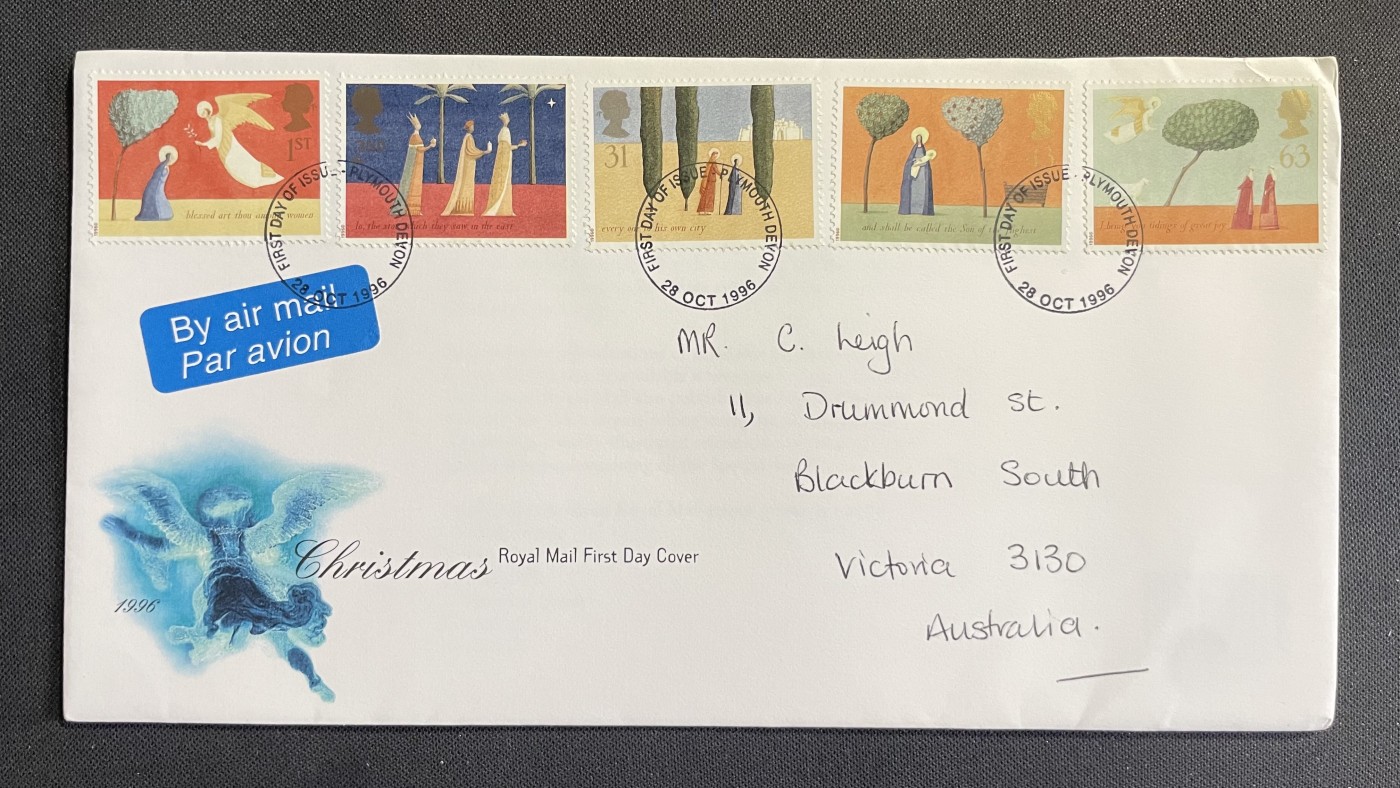 1ST
blessed art thou women
1996
2ND
lo, the star which they saw in the east
1996
31
every one his own city
1996
and shall be called the Son of the Highest
1996
63
I bring tidings of great joy
1996
FIRST DAY OF ISSUE - PLYMOUTH DEVON
28 OCT 1996
FIRST DAY OF ISSUE - PLYMOUTH DEVON
28 OCT 1996
FIRST DAY OF ISSUE - PLYMOUTH DEVON
28 OCT 1996
By air mail
Par avion
MR. C. Leigh
11, Drummond St.
Blackburn South
Victoria 3130
Australia.
Christmas Royal Mail First Day Cover
1996